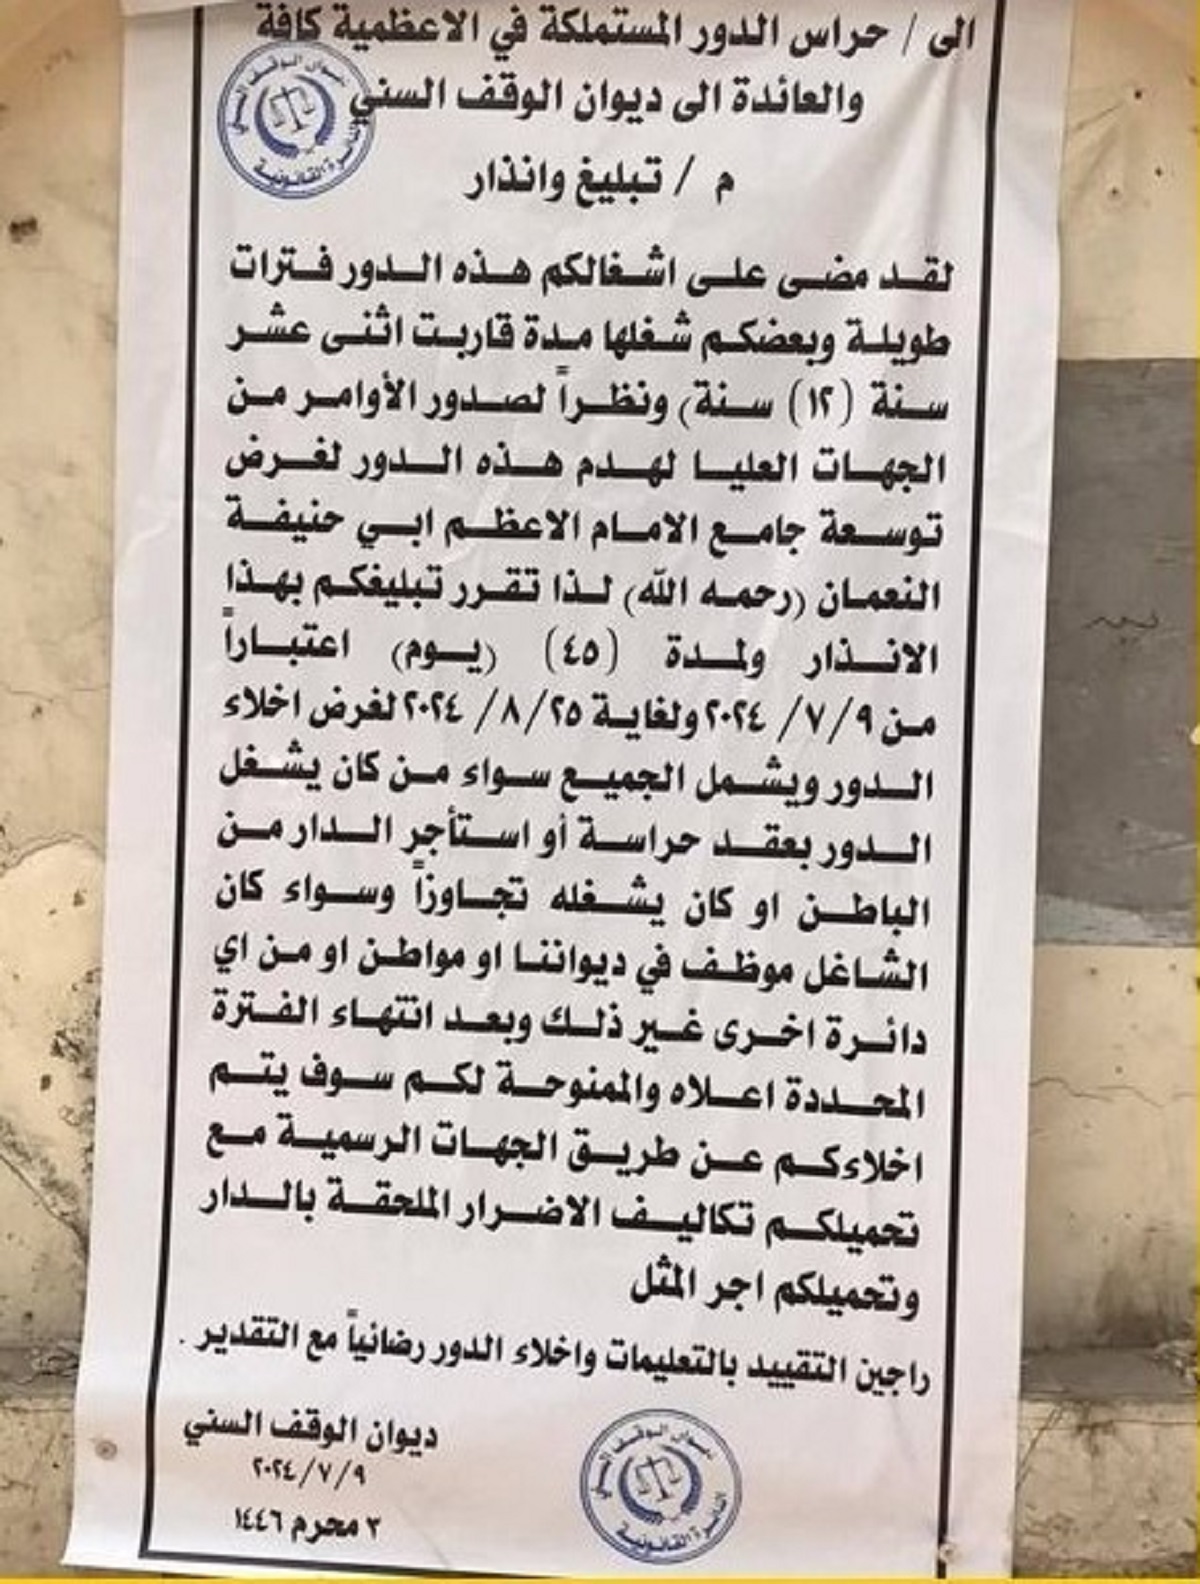 الى / حراس الدور المستملكة في الاعظمية كافة
والعائدة الى ديوان الوقف السني
ديوان الوقف السني
الدائرة القانونية
م / تبليغ وانذار
لقد مضى على اشغالكم هذه الدور فترات
طويلة وبعضكم شغلها مدة قاربت اثنى عشر
سنة (١٢) سنة) ونظراً لصدور الأوامر من
الجهات العليا لهدم هذه الدور لغرض
توسعة جامع الامام الاعظم ابي حنيفة
النعمان (رحمه الله) لذا تقرر تبليغكم بهذا
الانذار ولمدة (٤٥) (يوم) اعتباراً
من ٢٠٢٤/٧/٩ ولغاية ٢٠٢٤/٨/٢٥ لغرض اخلاء
الدور ويشمل الجميع سواء من كان يشغل
الدور بعقد حراسة أو استأجر الدار من
الباطن او كان يشغله تجاوزاً وسواء كان
الشاغل موظف في ديواننا او مواطن او من اي
دائرة اخرى غير ذلك وبعد انتهاء الفترة
المحددة اعلاه والممنوحة لكم سوف يتم
اخلاءكم عن طريق الجهات الرسمية مع
تحميلكم تكاليف الاضرار الملحقة بالدار
وتحميلكم اجر المثل
راجين التقييد بالتعليمات واخلاء الدور رضائياً مع التقدير .
ديوان الوقف السني
٢٠٢٤/٧/٩
٣ محرم ١٤٤٦
ديوان الوقف السني
الدائرة القانونية